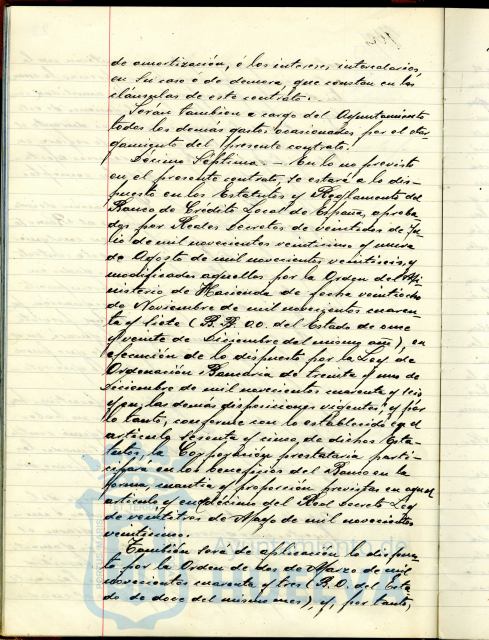 de amortización, ó los intereses intercalarios
en su caso ó de demora, que constan en las
cláusulas de este contrato.
Serán tambien a cargo del Ayuntamiento
todos los demás gastos ocasionados por el otor-
gamiento del presente contrato.
Decimo Séptima.- En lo no previsto
en el presente contrato, se estará a lo dis-
puesto en los Estatutos y Reglamento del
Banco de Crédito Local de España, aproba-
dos por Reales Decretos de veintidos de Ju-
lio de mil novecientos veinticinco y nueve
de Agosto de mil novecientos veintiseis, y
modificados aquellos por la Orden del Mi-
nisterio de Hacienda de fecha veintiocho
de Noviembre de mil novecientos cuaren-
ta y siete (B.B. O.O. del Estado de once
y veinte de Diciembre del mismo año), en
ejecución de lo dispuesto por la Ley de
Ordenación Bancaria de treinta y uno de
Diciembre de mil novecientos cuarenta y seis
y en las demás disposiciones vigentes; y por
lo tanto, conforme con lo establecido en el
articulo sesenta y cinco, de dichos Esta-
tutos, la Corporación prestataria parti-
cipará en los beneficios del Banco en la
forma, cuantia y proporción previstas en aquel
articulo y en el décimo del Real Decreto Ley
de veintitres de Mayo de mil novecientos
veinticinco.
Tambien será de aplicación lo dispues-
to por la Orden de dos de Marzo de mil
novecientos cuarenta y tres (B.O. del Esta-
do de doce del mismo mes), y, por tanto,
Ayuntamiento de
HUELVA